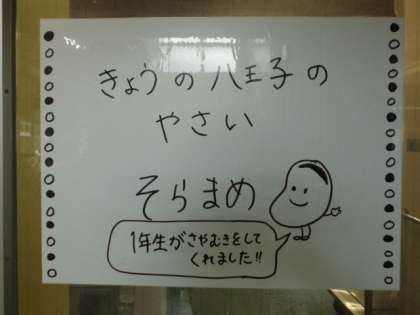 きょうの八王子の
やさい
そらまめ
1年生がさやむきをして
くれました!!